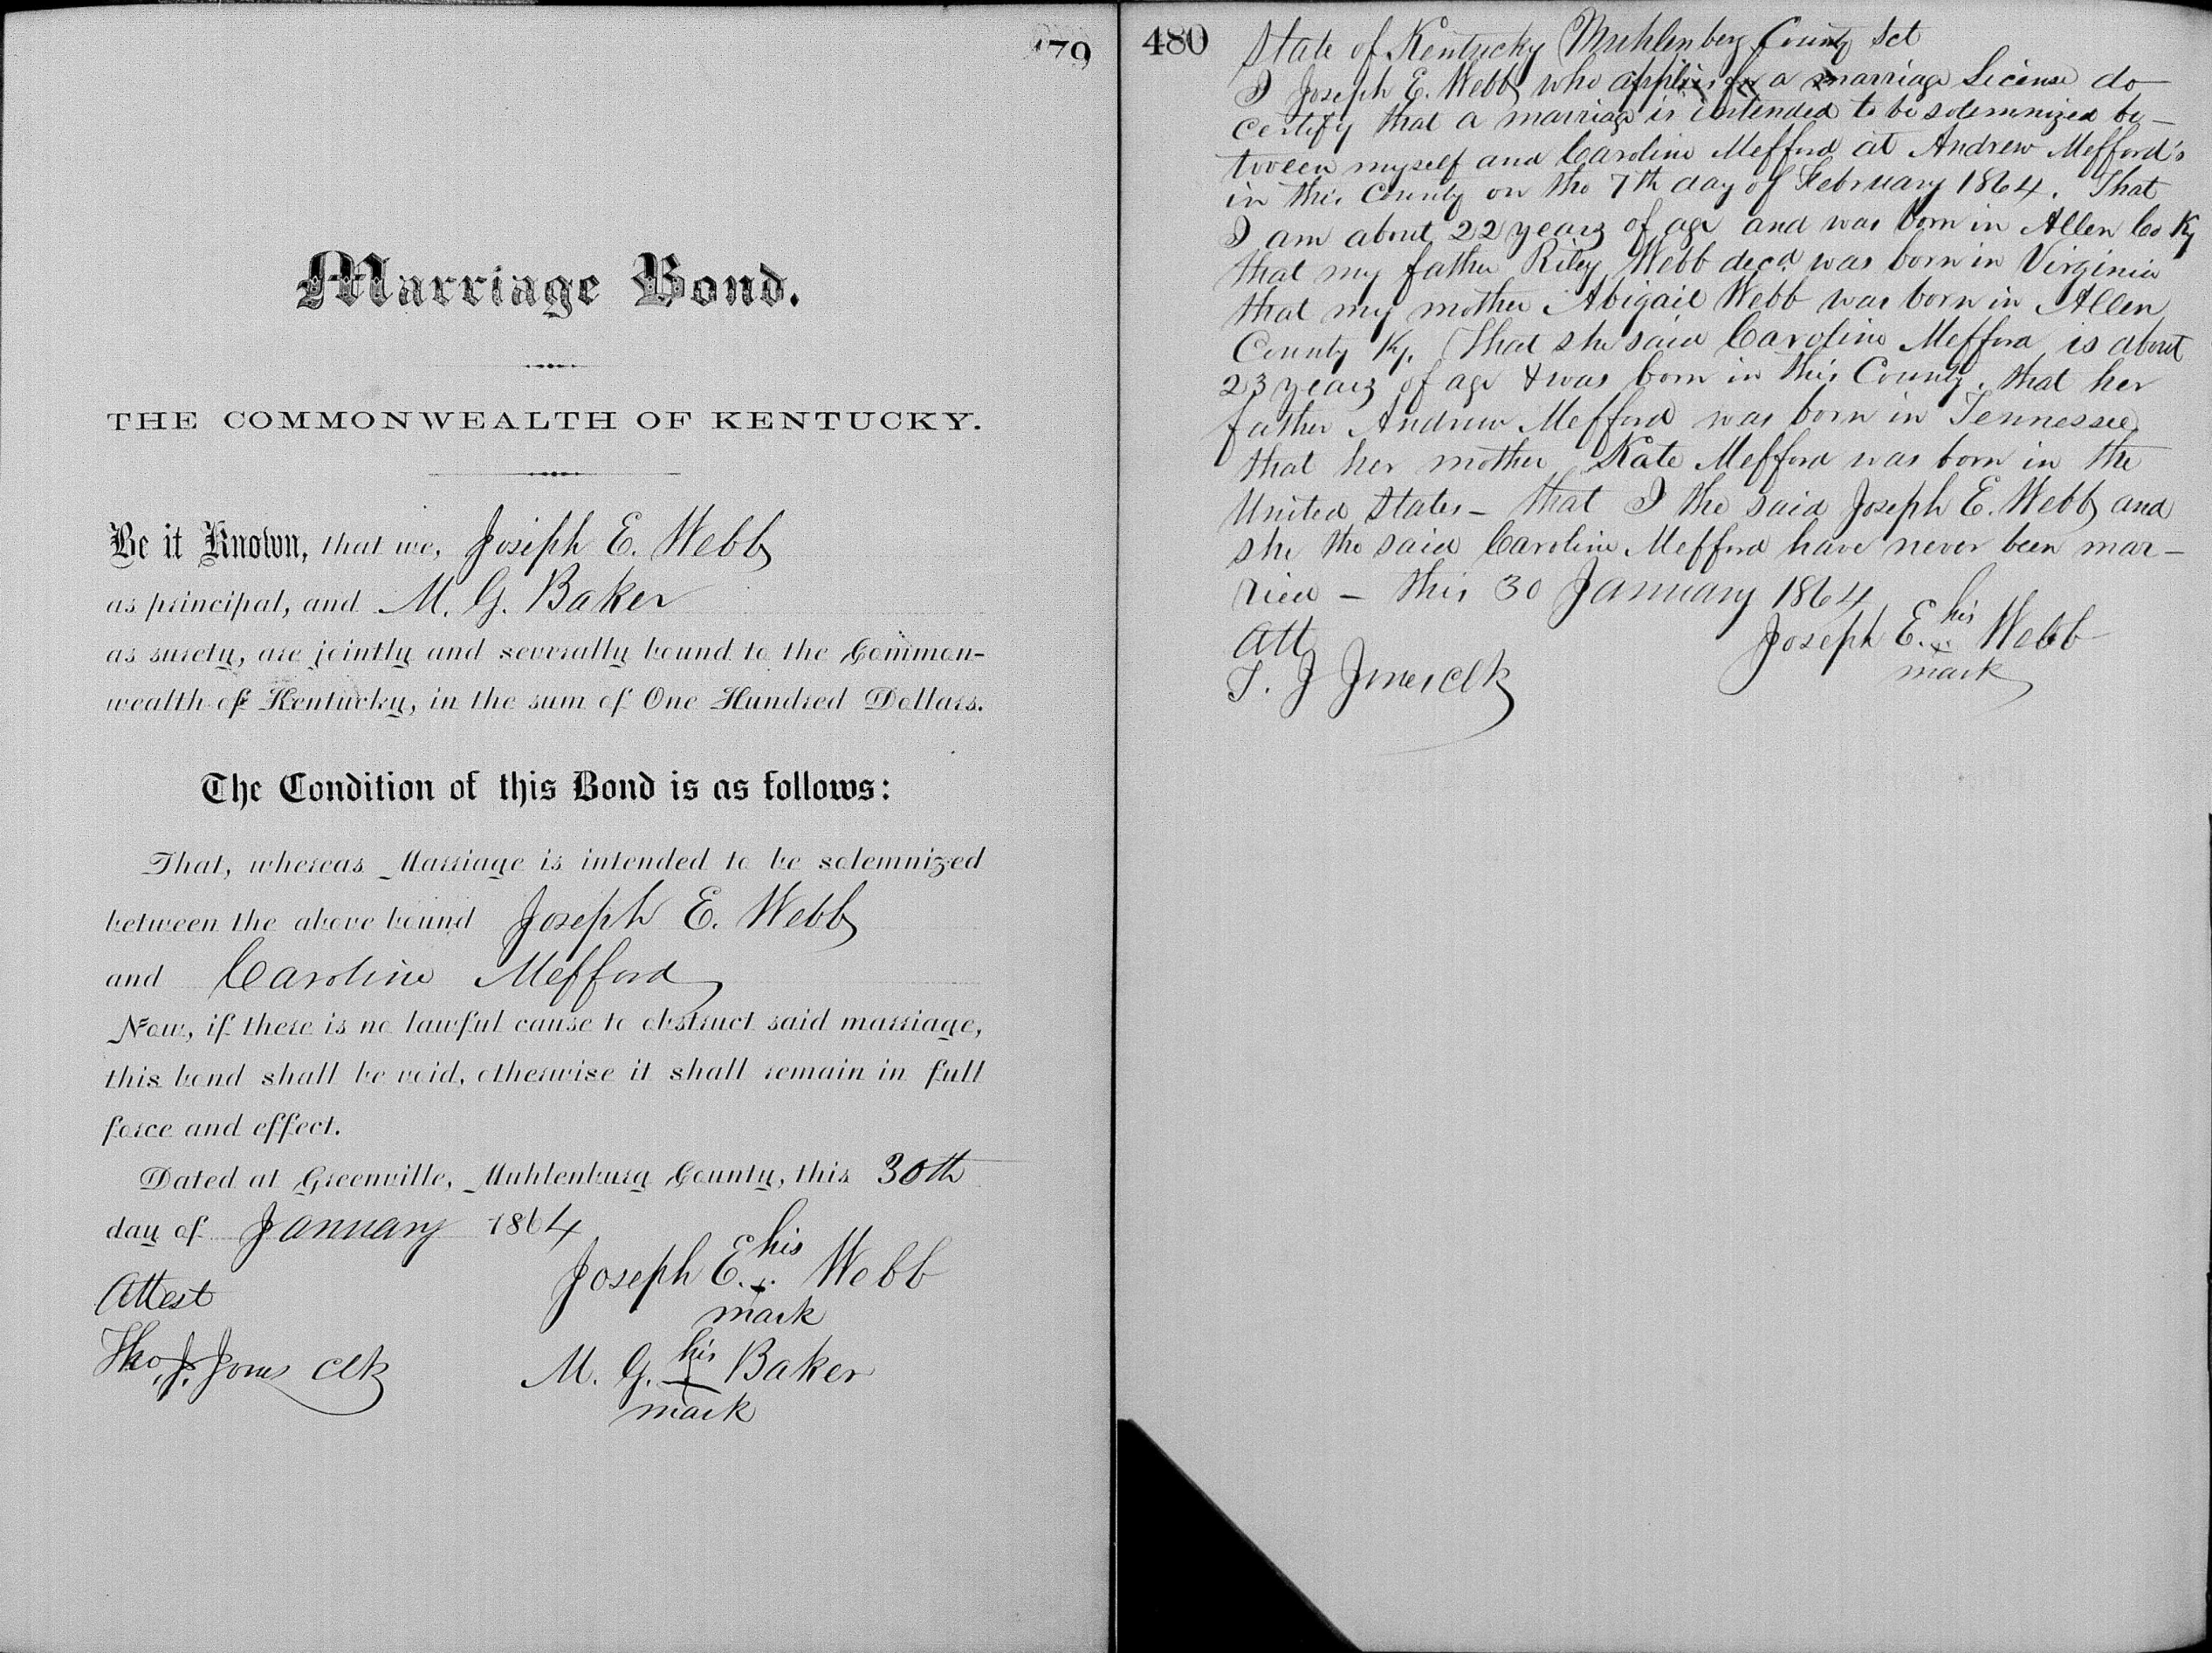 79
Marriage Bond.
THE COMMONWEALTH OF KENTUCKY.
Be it Known, that we, Joseph E. Webb
as principal, and M. G. Baker
as surety, are jointly and severally bound to the Common-
wealth of Kentucky, in the sum of One Hundred Dollars.
The Condition of this Bond is as follows:
That, whereas Marriage is intended to be solemnized
between the above bound Joseph E. Webb
and Caroline Mefford
Now, if there is no lawful cause to obstruct said marriage,
this bond shall be void, otherwise it shall remain in full
force and effect.
Dated at Greenville, Muhlenburg County, this 30th
day of January 1864
Attest
Joseph E. his Webb
mark
Tho. J. Jones Clk
M. G. his Baker
mark
480
State of Kentucky Muhlenberg County Sct
I Joseph E. Webb who applies for a marriage License do
certify that a marriage is intended to be solemnized be-
tween myself and Caroline Mefford at Andrew Mefford's
in this County on the 7th day of February 1864. That
I am about 22 years of age and was born in Allen Co Ky
that my father Riley Webb decd was born in Virginia
that my mother Abigail Webb was born in Allen
County Ky. That she said Caroline Mefford is about
23 years of age & was born in this County. that her
father Andrew Mefford was born in Tennessee
that her mother Kate Mefford was born in the
United States - that I the said Joseph E. Webb and
she the said Caroline Mefford have never been mar-
ried - this 30 January 1864
Att
Joseph E. his Webb
mark
T. J Jones Clk